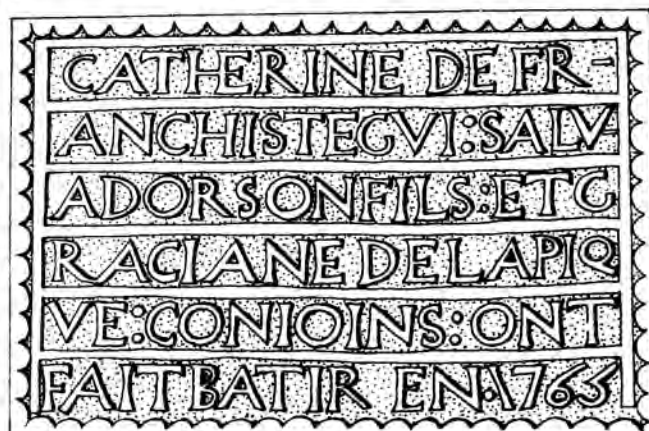 CATHERINE DE FR-
ANCHISTEGVI:SALV-
ADORSONFILS:ETG
RACIANE DE LAPIQ
VE:CONIOINS:ONT
FAIT BATIR EN:1765